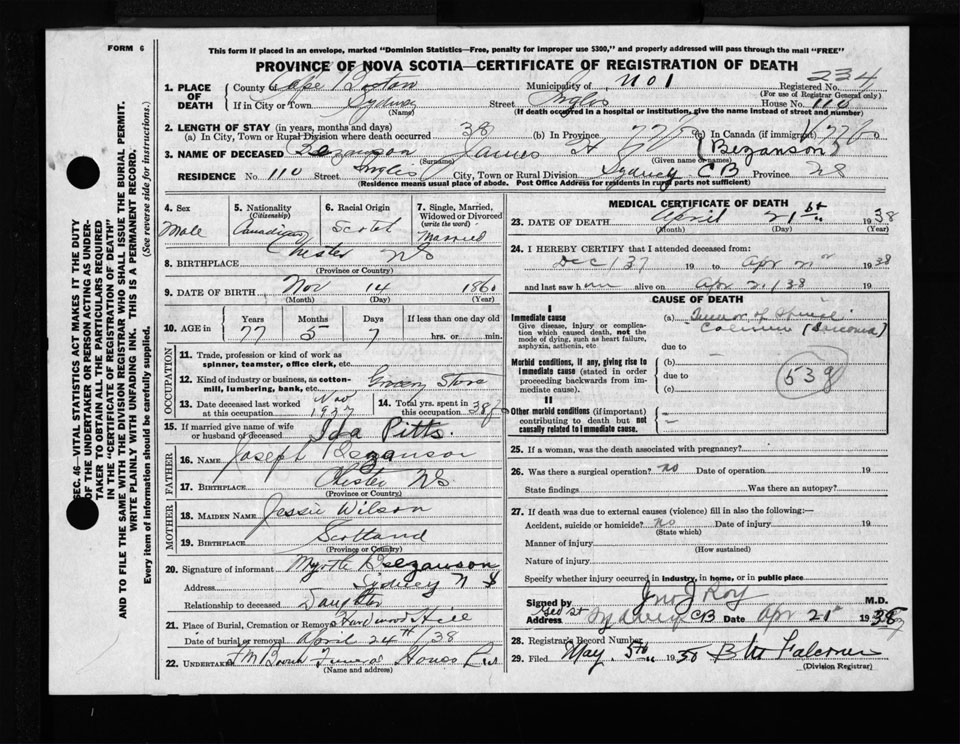 FORM 6
This form if placed in an envelope, marked "Dominion Statistics—Free, penalty for improper use $300," and properly addressed will pass through the mail "FREE"
PROVINCE OF NOVA SCOTIA—CERTIFICATE OF REGISTRATION OF DEATH
1. PLACE OF DEATH County of Cape Breton Municipality of No 1 Registered No. 234
(For use of Registrar General only)
If in City or Town Sydney Street Ingles House No. 110
(Name) (If death occurred in a hospital or institution, give the name instead of street and number)
2. LENGTH OF STAY (in years, months and days)
(a) In City, Town or Rural Division where death occurred 38 (b) In Province 77 (c) In Canada (if immigrant) 77
3. NAME OF DECEASED Bezanson James H (Bezanson)
(Surname) (Given name or names)
RESIDENCE No. 110 Street Ingles City, Town or Rural Division Sydney CB Province NS
(Residence means usual place of abode. Post Office Address for residents in rural parts not sufficient)
4. Sex Male
5. Nationality (Citizenship) Canadian
6. Racial Origin Scotch
7. Single, Married, Widowed or Divorced (write the word) Married
8. BIRTHPLACE Chester NS
(Province or Country)
9. DATE OF BIRTH Nov 14 1860
(Month) (Day) (Year)
10. AGE in Years Months Days If less than one day old
77 5 7 hrs. or min.
OCCUPATION
11. Trade, profession or kind of work as spinner, teamster, office clerk, etc.
12. Kind of industry or business, as cotton-mill, lumbering, bank, etc. Grocery Store
13. Date deceased last worked at this occupation Nov 1937 14. Total yrs. spent in this occupation 38
15. If married give name of wife or husband of deceased Ida Pitts.
FATHER
16. NAME Joseph Bezanson
17. BIRTHPLACE Chester NS
(Province or Country)
MOTHER
18. MAIDEN NAME Jessie Wilson
19. BIRTHPLACE Scotland
(Province or Country)
20. Signature of informant Myrtle Bezanson
Address Sydney N S
Relationship to deceased Daughter
21. Place of Burial, Cremation or Removal Hardwood Hill
Date of burial or removal April 24th /38
22. Undertaker Funeral Home
(Name and address)
MEDICAL CERTIFICATE OF DEATH
23. DATE OF DEATH April 21st 1938
(Month) (Day) (Year)
24. I HEREBY CERTIFY that I attended deceased from:
Dec /37 19 to Apr 21 1938
and last saw him alive on Apr 21/38 19
CAUSE OF DEATH
I
Immediate cause (a) Tumor of Spinal
Give disease, injury or complication which caused death, not the mode of dying, such as heart failure, asphyxia, asthenia, etc. Column (Sarcoma)
due to
Morbid conditions, if any, giving rise to immediate cause (stated in order proceeding backwards from immediate cause). (b)
due to
(c)
53g
II
Other morbid conditions (if important) contributing to death but not causally related to immediate cause.
25. If a woman, was the death associated with pregnancy?
26. Was there a surgical operation? no Date of operation 19
State findings Was there an autopsy?
27. If death was due to external causes (violence) fill in also the following:—
Accident, suicide or homicide? no Date of injury 19
(State which)
Manner of injury
(How sustained)
Nature of injury
Specify whether injury occurred in industry, in home, or in public place
Signed by Jno J Roy M.D.
Address Geo St Sydney CB Date Apr 21st 1938
28. Registrar's Record Number
29. Filed May 5th 19 Falconer
(Division Registrar)
SEC. 46—VITAL STATISTICS ACT MAKES IT THE DUTY
OF THE UNDERTAKER OR PERSON ACTING AS UNDER-
TAKER TO OBTAIN ALL THE PARTICULARS REQUIRED
IN THE "CERTIFICATE OF REGISTRATION OF DEATH"
AND TO FILE THE SAME WITH THE DIVISION REGISTRAR WHO SHALL ISSUE THE BURIAL PERMIT.
WRITE PLAINLY WITH UNFADING INK. THIS IS A PERMANENT RECORD.
Every item of information should be carefully supplied. (See reverse side for instructions.)